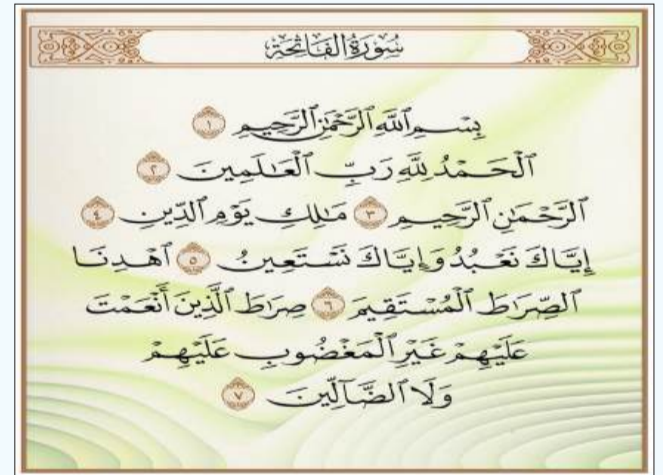 سُورَةُ الْفَاتِحَةِ
بِسْمِ ٱللَّهِ ٱلرَّحْمَٰنِ ٱلرَّحِيمِ ١
ٱلْحَمْدُ لِلَّهِ رَبِّ ٱلْعَـٰلَمِينَ ٢
ٱلرَّحْمَـٰنِ ٱلرَّحِيمِ ٣ مَـٰلِكِ يَوْمِ ٱلدِّينِ ٤
إِيَّاكَ نَعْبُدُ وَإِيَّاكَ نَسْتَعِينُ ٥ ٱهْدِنَا
ٱلصِّرَٰطَ ٱلْمُسْتَقِيمَ ٦ صِرَٰطَ ٱلَّذِينَ أَنْعَمْتَ
عَلَيْهِمْ غَيْرِ ٱلْمَغْضُوبِ عَلَيْهِمْ
وَلَا ٱلضَّآلِّينَ ٧